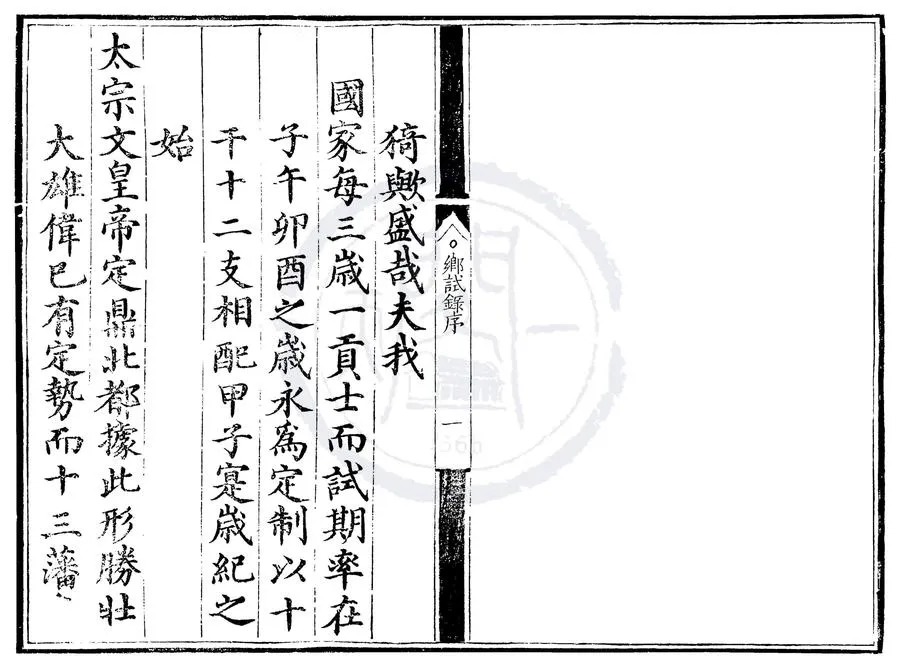 鄉試錄序
一
猗歟盛哉夫我
國家每三歲一貢士而試期率在
子午卯酉之歲永爲定制以十
干十二支相配甲子寔歲紀之
始
太宗文皇帝定鼎北都據此形勝壯
大雄偉巳有定勢而十三藩